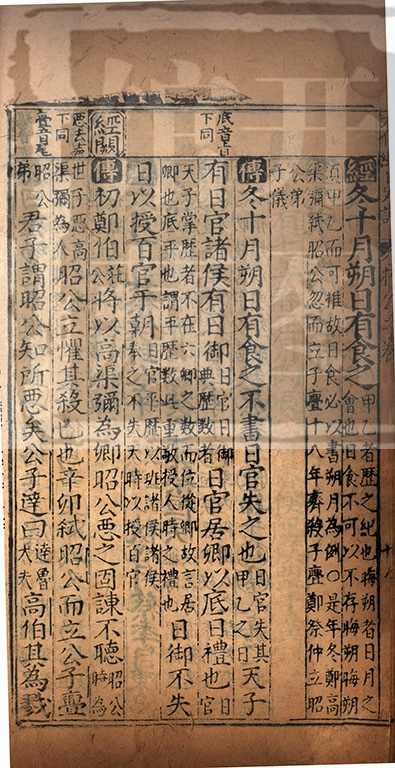 經冬十月朔日有食之甲乙者歷之紀也晦朔者日月之會也日食不可以不存晦朔晦朔
須甲乙而可推故日食必以書朔日為例〇是年冬鄭高渠彌弒昭公忽而立子亹十八年齊殺子亹鄭祭仲立昭
公弟子儀
傳冬十月朔日有食之不書日官失之也日官失其甲乙之日天子
底音旨下同
有日官諸侯有日御日官日御典歷數者日官居卿以底日禮也日官
天子掌歷者不在六卿之數而位從卿故言居卿也底平也謂平歷數此重敬授人時之禮也日御不失
日以授百官于朝日官平歷以班諸侯諸侯奉之不失天時以授百官
經闕
傳初鄭伯莊公將以高渠彌為卿昭公惡之固諫不聽昭公時為
惡去下同
世子惡高渠彌為人昭公立懼其殺己也辛卯弒昭公而立公子亹
亹音尾
昭公弟君子謂昭公知所惡矣公子達曰達魯大夫高伯其為戮